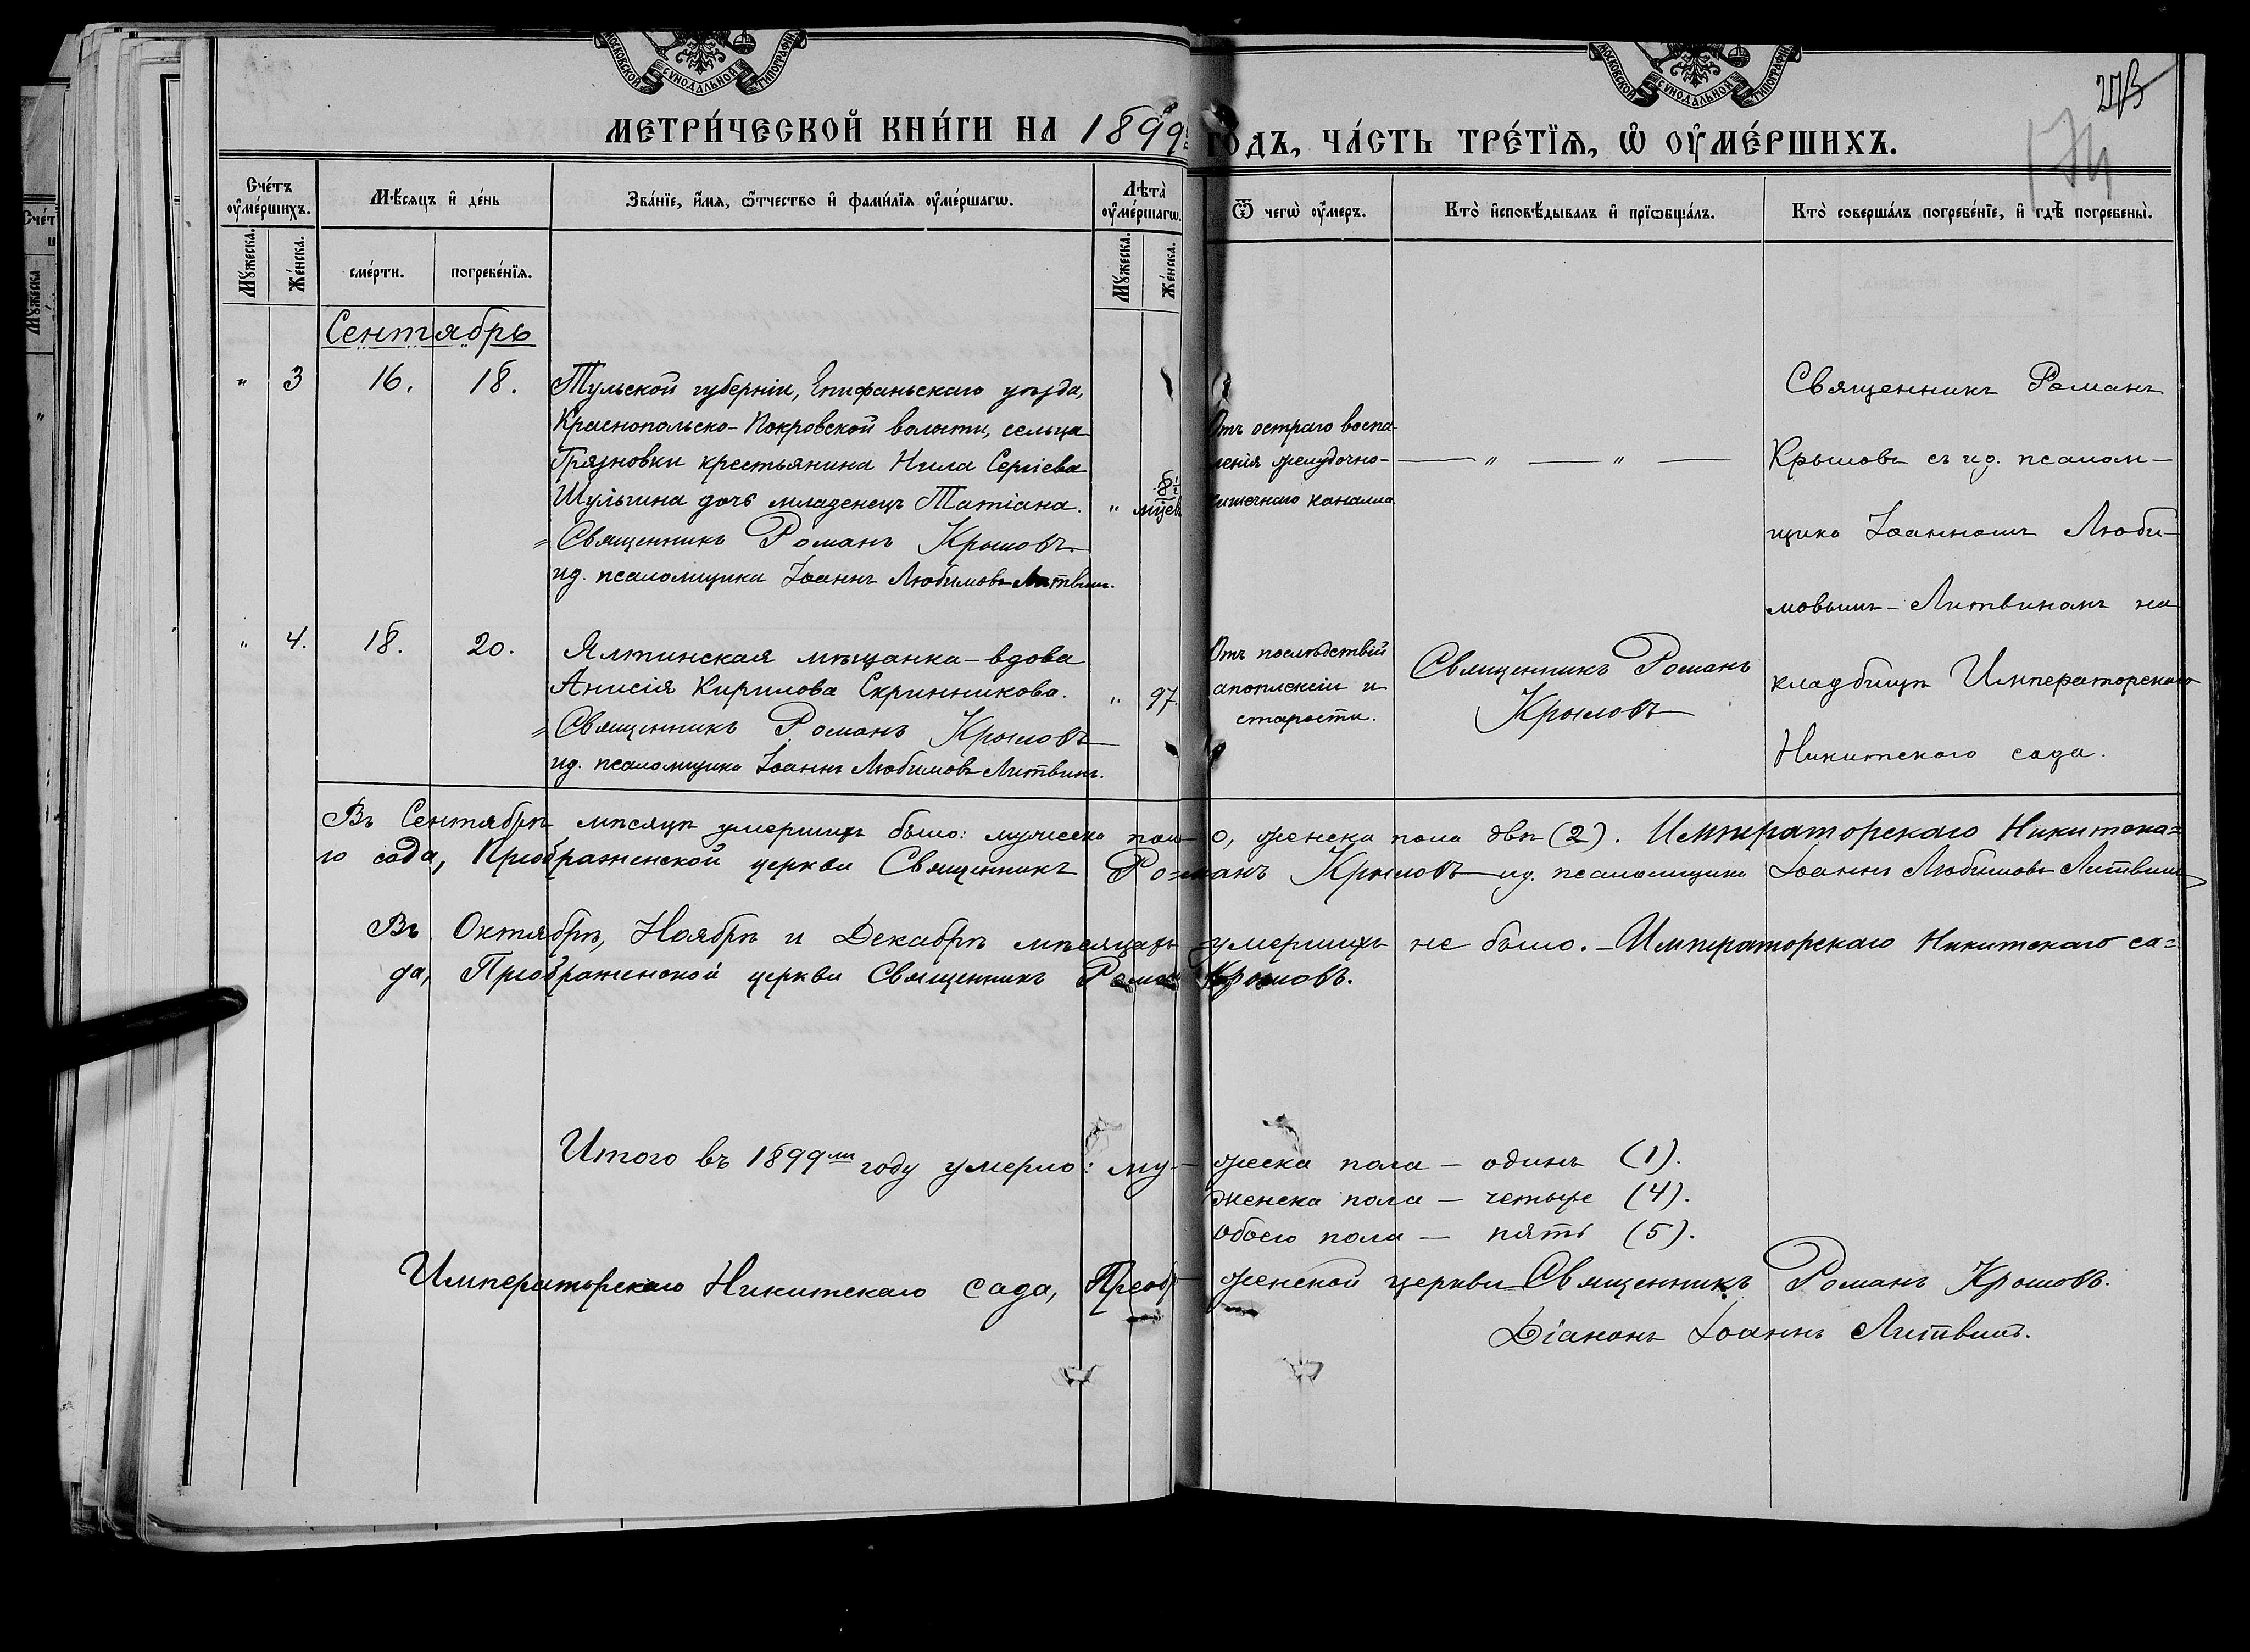 МОСКОВСКОЙ СУНОДАЛЬНОЙ ТИПОГРАФІИ
МОСКОВСКОЙ СУНОДАЛЬНОЙ ТИПОГРАФІИ
174
МЕТРИ́ЧЕСКОЙ КНИ́ГИ НА 1899 ГОДЪ, ЧА́СТЬ ТРЕ́ТЇѦ, Ѡ҆ ОУ҆МЕ́РШИХЪ.
Сче́тъ оу҆ме́ршихъ.
Мꙋ́жеска.
Же́нска.
Мѣ́сяцъ и҆ де́нь
сме́рти.
погребе́нїѧ.
Зва́нїе, и҆́мѧ, ѻ҆́тчество и҆ фами́лїѧ оу҆ме́ршагѡ.
Лѣта̀ оу҆ме́ршагѡ.
Мꙋ́жеска.
Же́нска.
Ѿ чегѡ̀ оу҆́меръ.
Кто̀ и҆сповѣ́дывалъ и҆ прїѡбща́лъ.
Кто̀ соверша́лъ погребе́нїе, и҆ гдѣ̀ погребены̀.
Сентябрь
" 3 16. 18.
Тульской губерніи, Епифаньскаго уѣзда,
Краснопольско-Покровской волости, сельца
Грязновки крестьянина Нила Сергіева
Шульгина дочь младенецъ Татіана.
Священникъ Романъ Крыловъ.
ид. псаломщика Іоаннъ Любимовъ-Литвинъ.
" 8½ мѣсяц.
Отъ остраго воспа-
ленія желудочно-
кишечнаго канала
— " — " —
Священникъ Романъ
Крыловъ съ ид. псалом-
щика Іоанномъ Люби-
мовымъ-Литвиномъ на
кладбищѣ Императорскаго
Никитскаго сада.
" 4. 18. 20.
Ялтинская мѣщанка-вдова
Анисія Кирилова Скринникова.
Священникъ Романъ Крыловъ
ид. псаломщика Іоаннъ Любимовъ-Литвинъ.
" 97.
Отъ послѣдствій
апоплексіи и
старости.
Священникъ Романъ
Крыловъ
Въ Сентябрѣ мѣсяцѣ умершихъ было: мужеска пола 0, женска пола двѣ (2). Императорскаго Никитска=
го сада, Преображенской церкви Священникъ Романъ Крыловъ ид. псаломщика Іоаннъ Любимовъ-Литвинъ
Въ Октябрѣ, Ноябрѣ и Декабрѣ мѣсяцахъ умершихъ не было. - Императорскаго Никитскаго са=
да, Преображенской церкви Священникъ Романъ Крыловъ.
Итого въ 1899мъ году умерло: мужеска пола — одинъ (1).
женска пола — четыре (4).
обоего пола — пять (5).
Императорскаго Никитскаго сада, Преображенской церкви Священникъ Романъ Крыловъ.
Діаконъ Іоаннъ Литвинъ.